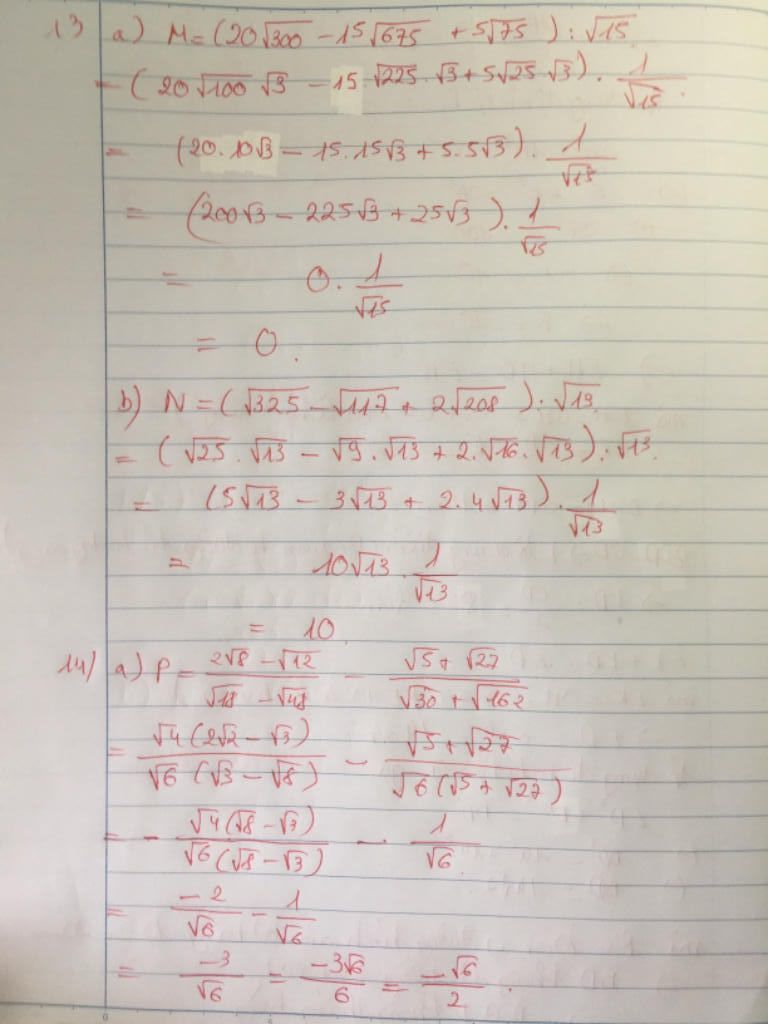 13 a) M = (20√300 - 15√675 + 5√75) : √15
= (20√100 √3 - 15.√225.√3 + 5√25 √3) . 1/√15.
= (20.10√3 - 15.15√3 + 5.5√3) . 1/√15
= (200√3 - 225√3 + 25√3) . 1/√15
= 0 . 1/√15
= 0.
b) N = (√325 - √117 + 2√208) : √13
= (√25.√13 - √9.√13 + 2.√16.√13) : √13.
= (5√13 - 3√13 + 2.4√13) . 1/√13
= 10√13 . 1/√13
= 10
14) a) P = (2√8 - √12)/(√18 - √48) - (√5 + √27)/(√30 + √162)
= √4(2√2 - √3)/√6(√3 - √8) - (√5 + √27)/√6(√5 + √27)
= - √4(√8 - √3)/√6(√8 - √3) - 1/√6.
= -2/√6 - 1/√6
= -3/√6 = -3√6/6 = -√6/2.